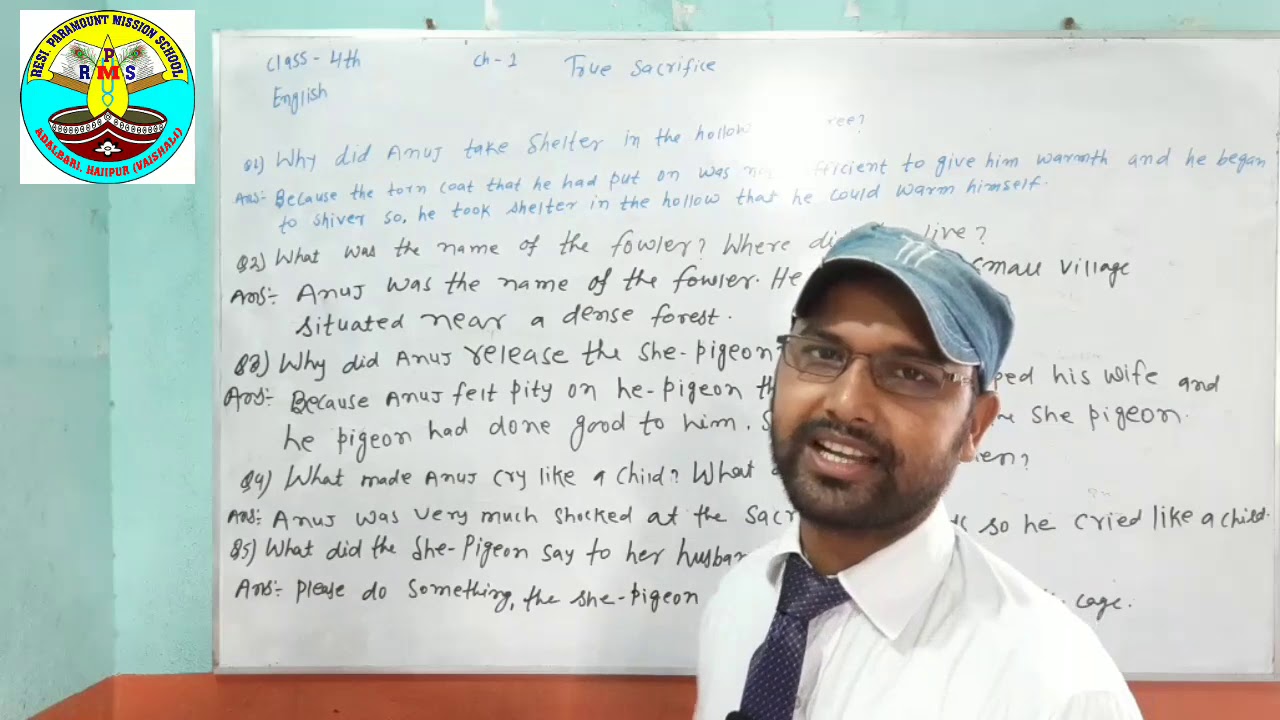 RESI. PARAMOUNT MISSION SCHOOL
P
R M S
ADALBARI, HAJIPUR (VAISHALI)
Class - 4th Ch - 1 True Sacrifice
English
Q1) Why did Anuj take shelter in the hollow ree?
Ans:- Because the torn coat that he had put on was fficient to give him warmth and he began
to shiver so, he took shelter in the hollow that he could warm himself.
Q2) What was the name of the fowler? Where di live?
Ans:- Anuj was the name of the fowler. He small village
situated near a dense forest.
Q3) Why did Anuj release the she-pigeon?
Ans:- Because Anuj felt pity on he-pigeon th ped his wife and
he pigeon had done good to him. S she pigeon.
Q4) What made Anuj cry like a child? What en?
Ans:- Anuj was very much shocked at the sacr so he cried like a child.
Q5) What did the she-Pigeon say to her husban
Ans:- Please do something, the she-pigeon cage.